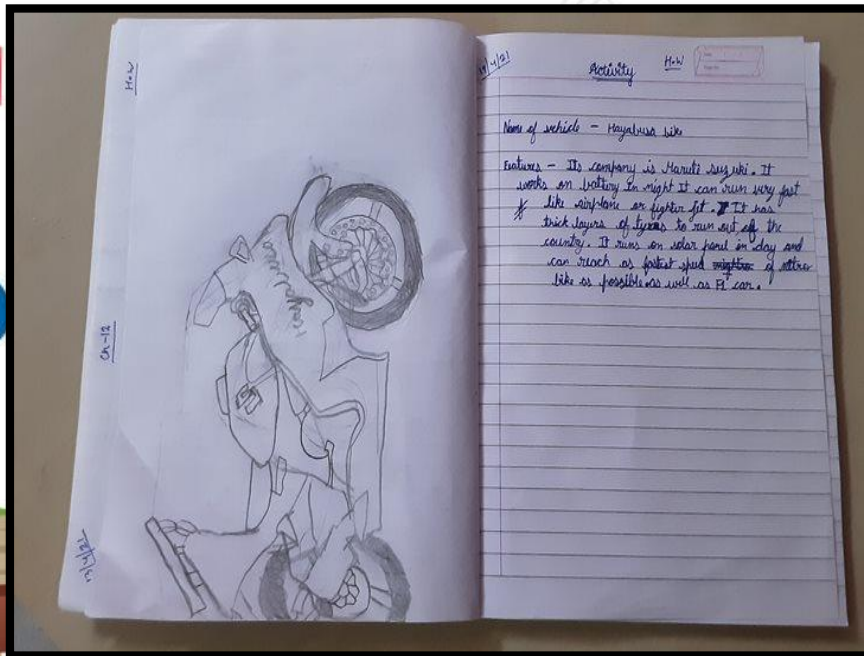 H.W
Ch-12
13/4/21
Activity
H.W
Name of vehicle - Hayabusa bike
Features - Its company is Maruti suzuki. It
works on battery In night It can run very fast
like airplane or fighter jet. It has
thick layers of tyres to run out of the
country. It runs on solar panel in day and
can reach as fastest speed of
bike as possible as well as F1 car.